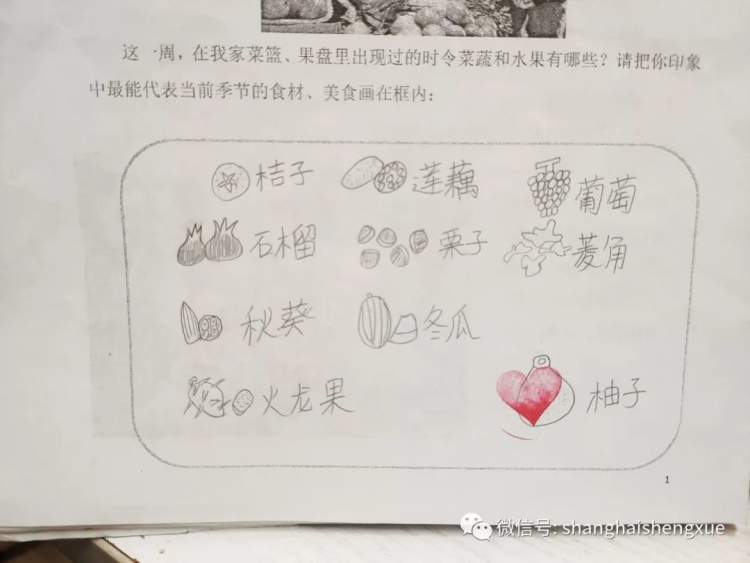 这一周，在我家菜篮、果盘里出现过的时令菜蔬和水果有哪些？请把你印象
中最能代表当前季节的食材、美食画在框内：
桔子 莲藕 葡萄
石榴 栗子 菱角
秋葵 冬瓜
火龙果 柚子
1
微信号: shanghaishengxue